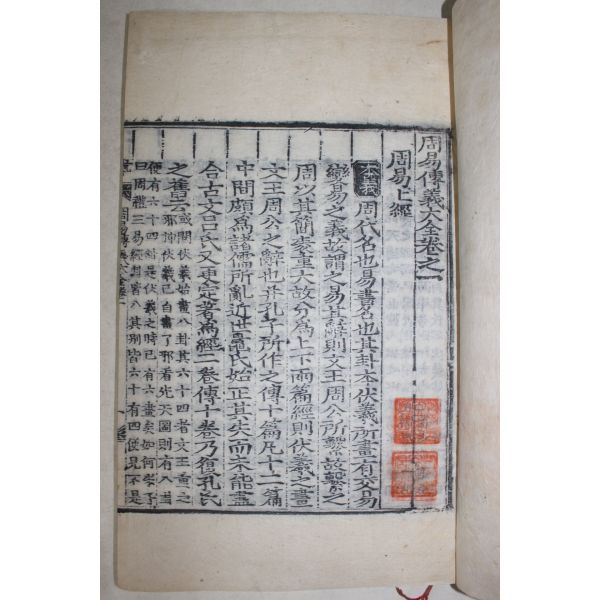 周易傳義大全卷之一
周易上經
本義 周代名也易書名也其卦本伏羲所畫有交易
變易之義故謂之易其辭則文王周公所繫故繫之
周以其簡袠重大故分爲上下兩篇經則伏羲之畫
文王周公之辭也幷孔子所作之傳十篇凡十二篇
中間頗爲諸儒所亂近世晁氏始正其失而未能盡
合古文呂氏又更定著爲經二卷傳十卷乃復孔氏
之舊云
或問伏羲始畫八卦其六十四者文王重之
邪抑伏羲已自畫了邪看先天圖則有八卦
便有六十四
是伏羲之時已有六畫矣如何
曰周禮三易經卦皆八其別皆六十有四便見不是